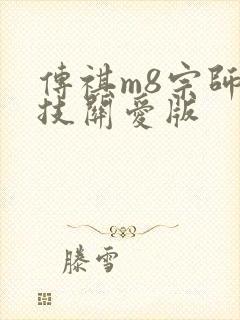 傳祺m8宗師
技關愛版
滕雪